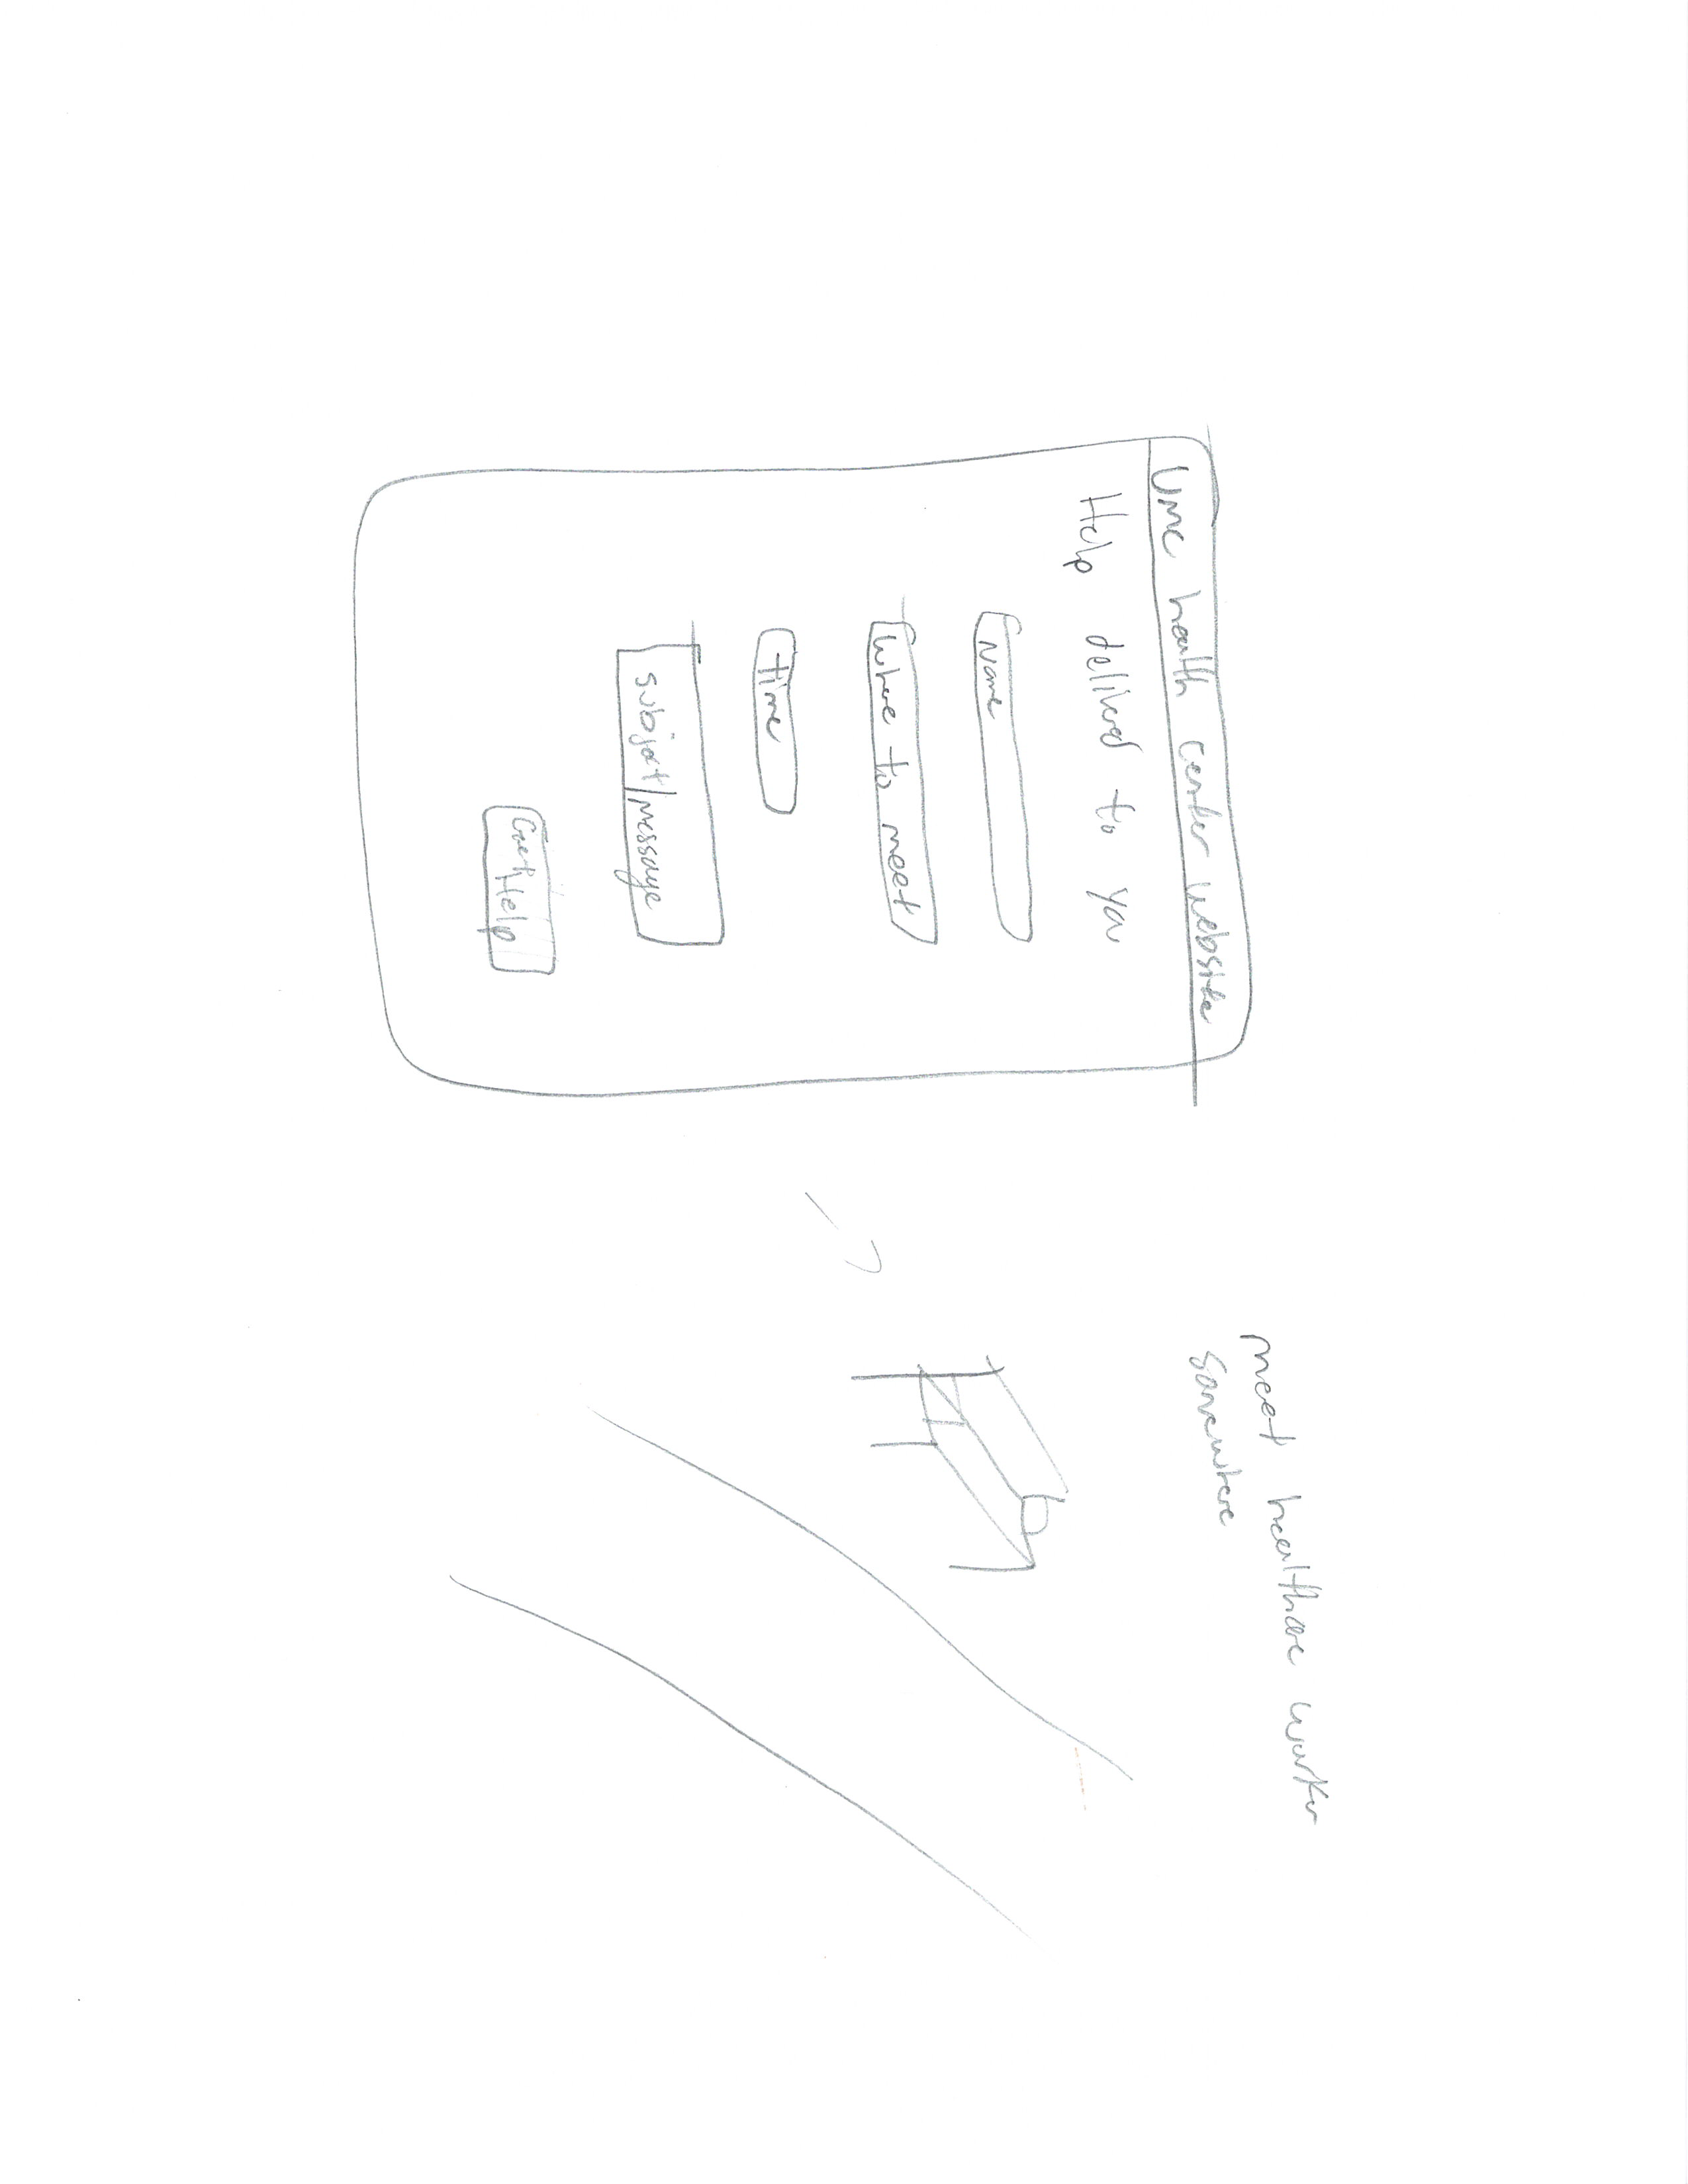 UMC health center website
Help delivered to you
Name
Where to meet
time
subject/message
Get Help
meet healthcare worker
somewhere